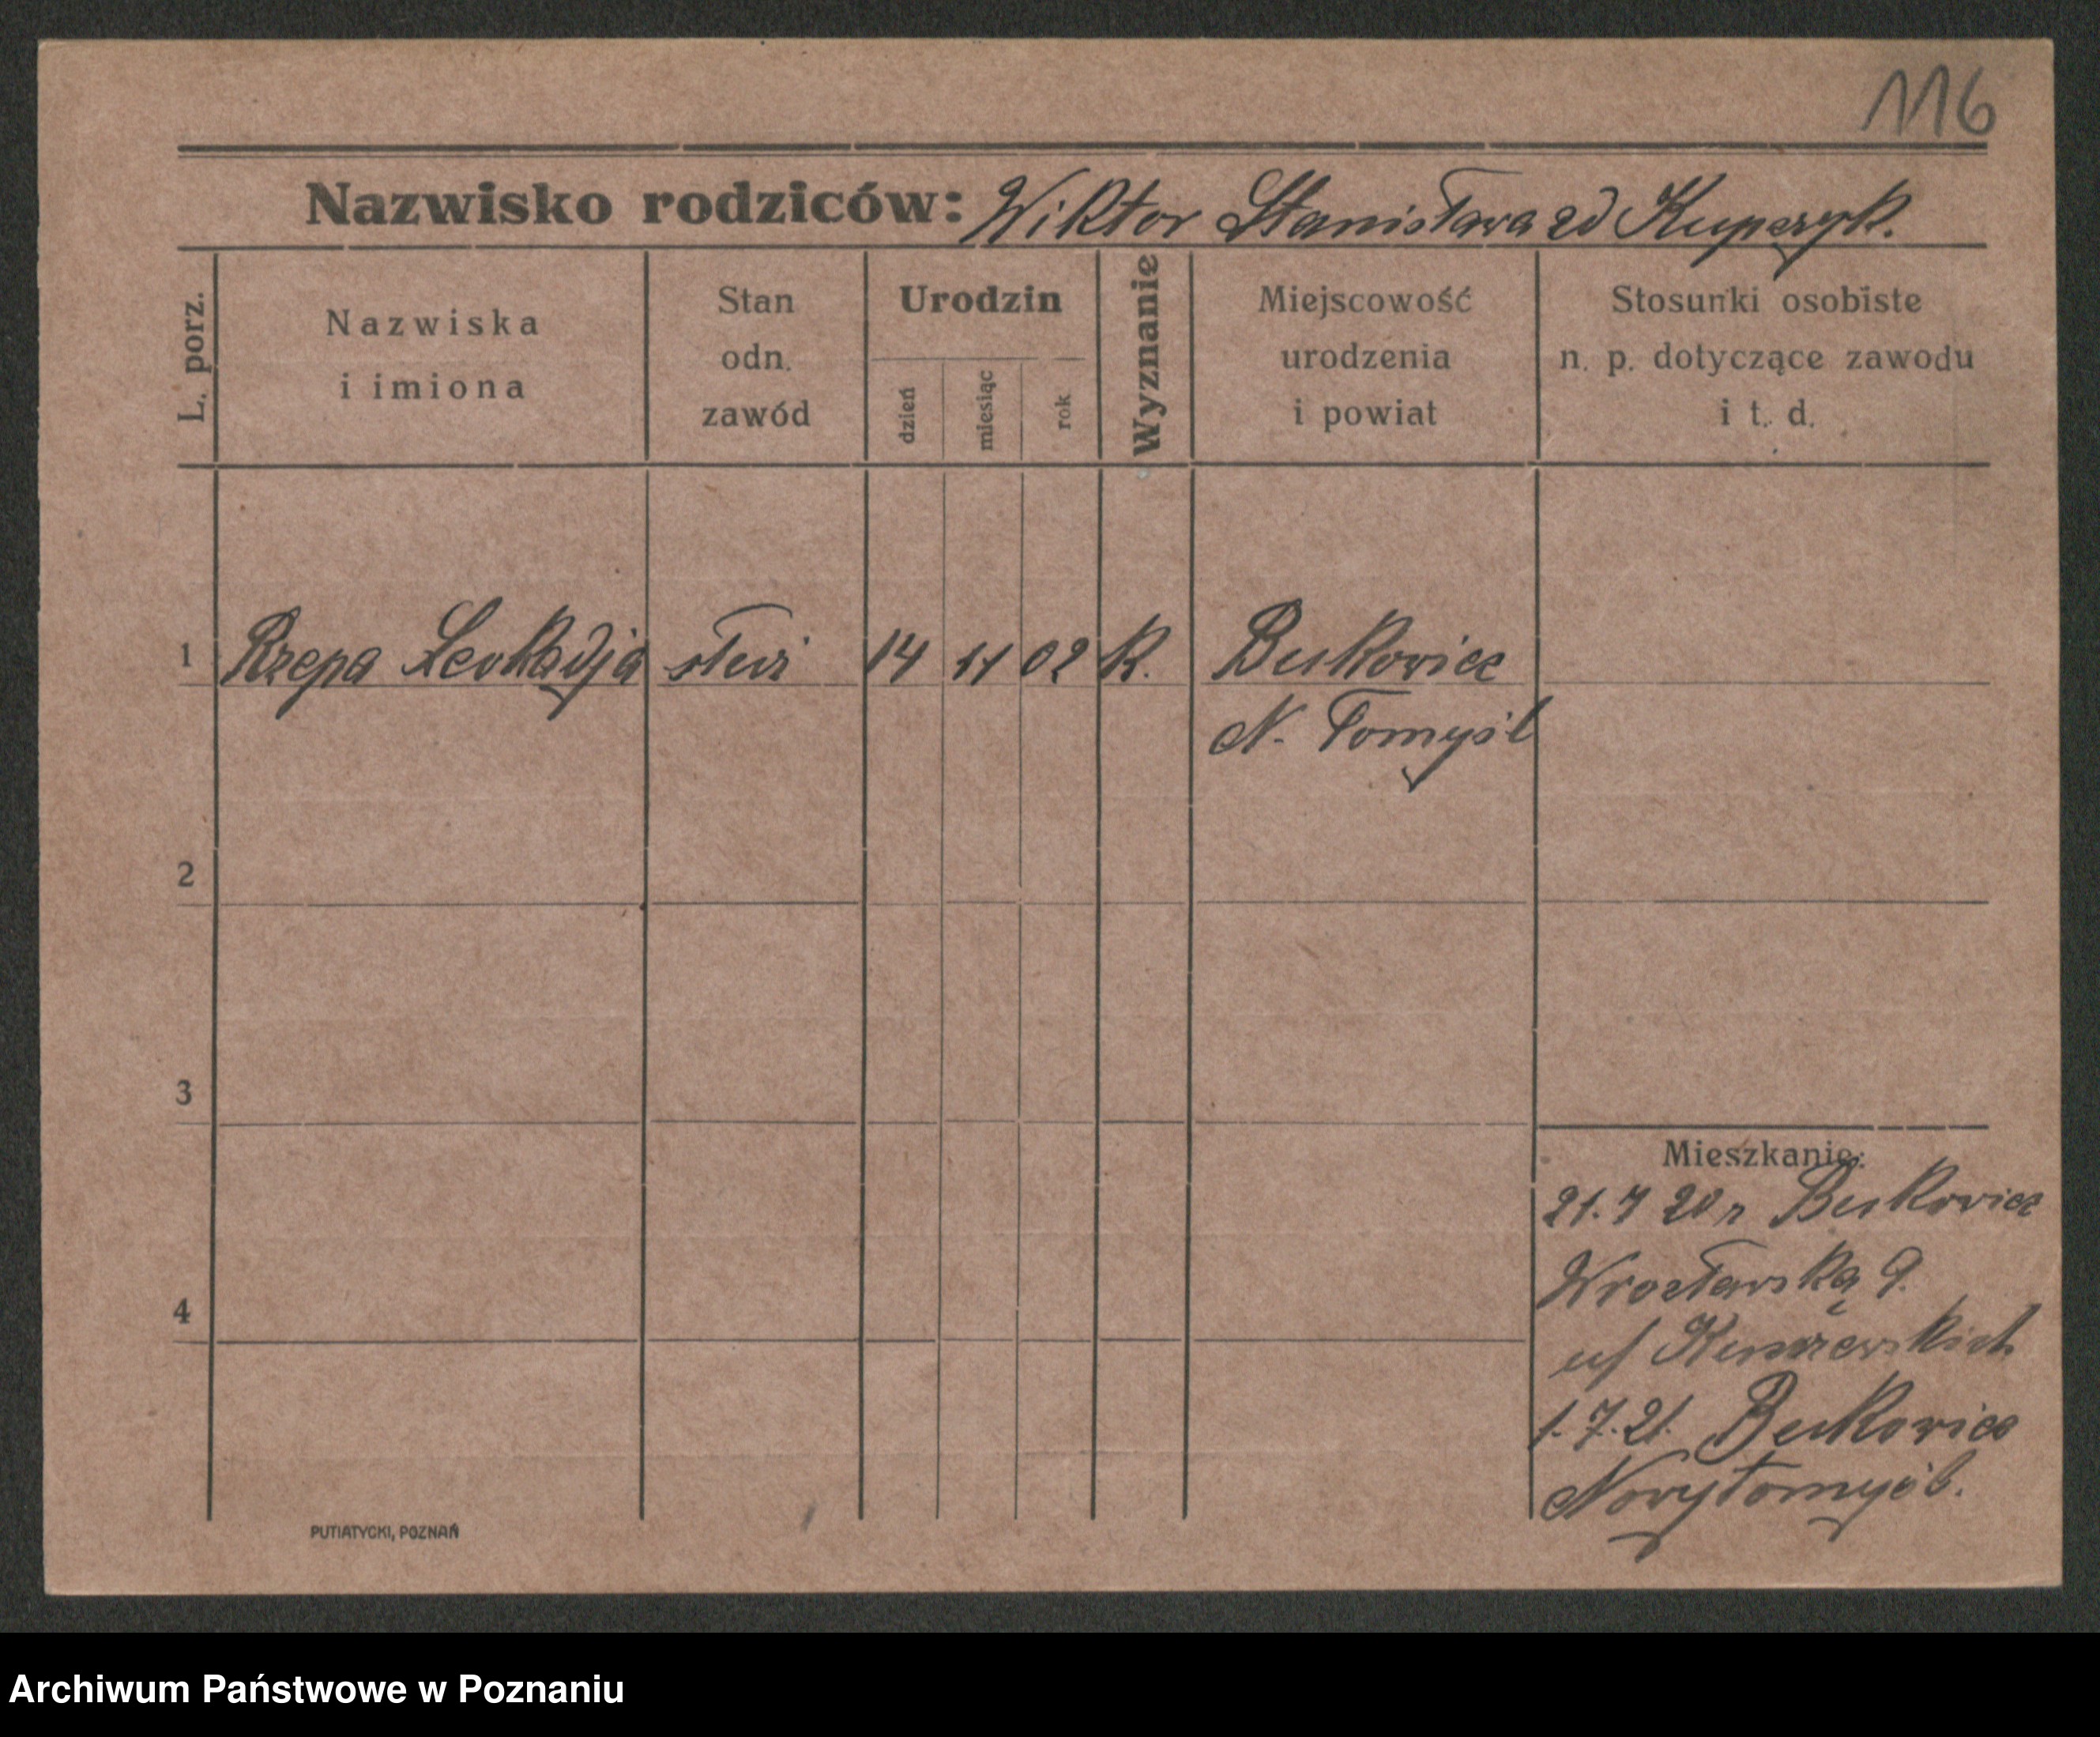 116
Nazwisko rodziców: Wiktor Stanisława zd Kupczyk.
L. porz.
Nazwiska
i imiona
Stan
odn.
zawód
Urodzin
dzień
miesiąc
rok
Wyznanie
Miejscowość
urodzenia
i powiat
Stosunki osobiste
n. p. dotyczące zawodu
i t. d.
1 Rzepa Leokadja służ 14 11 02 K. Bukowiec
N. Tomyśl
2
3
4
Mieszkanie:
21.7 20 r Bukowiec
Wrocławska 9.
u/
1.7.21. Bukowiec
Nowytomyśl.
PUTIATYCKI, POZNAŃ
Archiwum Państwowe w Poznaniu